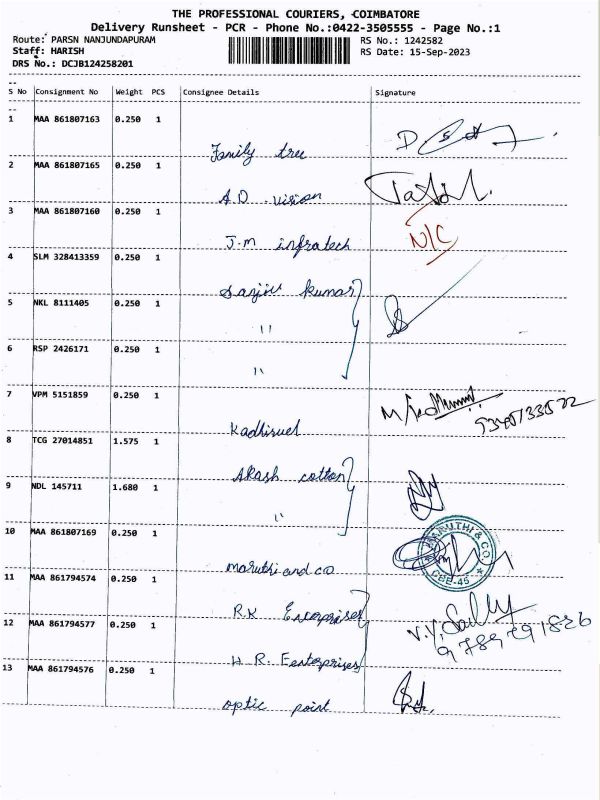 THE PROFESSIONAL COURIERS, COIMBATORE
Delivery Runsheet - PCR - Phone No.:0422-3505555 - Page No.:1
Route: PARSN NANJUNDAPURAM RS No.: 1242582
Staff: HARISH RS Date: 15-Sep-2023
DRS No.: DCJB124258201
S No Consignment No Weight PCS Consignee Details Signature
1 MAA 861807163 0.250 1
Family tree
2 MAA 861807165 0.250 1
A.D. vision
3 MAA 861807160 0.250 1
J.M infratech N/C
4 SLM 328413359 0.250 1
Sanjiv kumar
5 NKL 8111405 0.250 1
"
6 RSP 2426171 0.250 1
"
7 VPM 5151859 0.250 1
Kadhirvel
8 TCG 27014851 1.575 1
Akash cotton
9 NDL 145711 1.680 1
"
10 MAA 861807169 0.250 1
MARUTHI & CO
CBE-45
maruthi and co
11 MAA 861794574 0.250 1
R.K Enterprises
12 MAA 861794577 0.250 1
9789791826
H R. Eenterprises
13 MAA 861794576 0.250 1
optic point